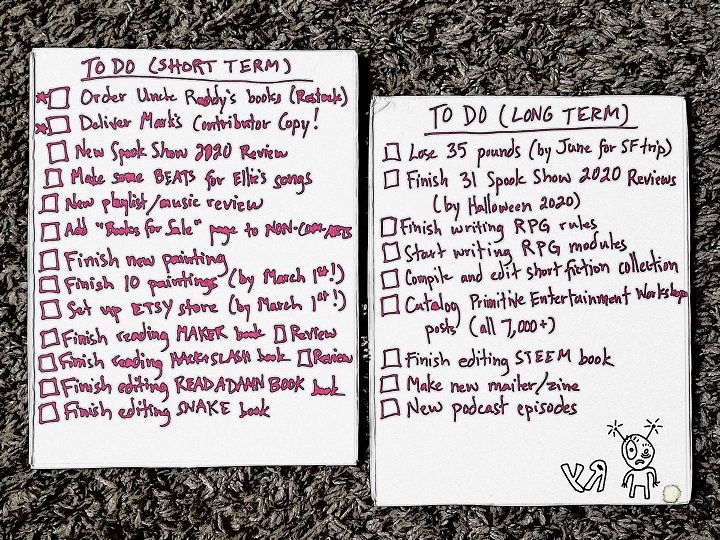 TO DO (SHORT TERM)
Order Uncle Raddy's books (Restock)
Deliver Mark's Contributor Copy!
New Spook Show 2020 Review
Make some BEATS for Ellie's songs
New playlist/music review
Add "Books for Sale" page to NON-COM-ARTS
Finish new painting
Finish 10 paintings (by March 1st!)
Set up ETSY store (by March 1st!)
Finish reading MAKER book Review
Finish reading HACK+SLASH book Review
Finish editing READ A DAMN BOOK book
Finish editing SNAKE book
TO DO (LONG TERM)
Lose 35 pounds (by June for SF trip)
Finish 31 Spook Show 2020 Reviews
(by Halloween 2020)
Finish writing RPG rules
Start writing RPG modules
Compile and edit short fiction collection
Catalog Primitive Entertainment Workshop
posts (all 7,000+)
Finish editing STEEM book
Make new mailer/zine
New podcast episodes